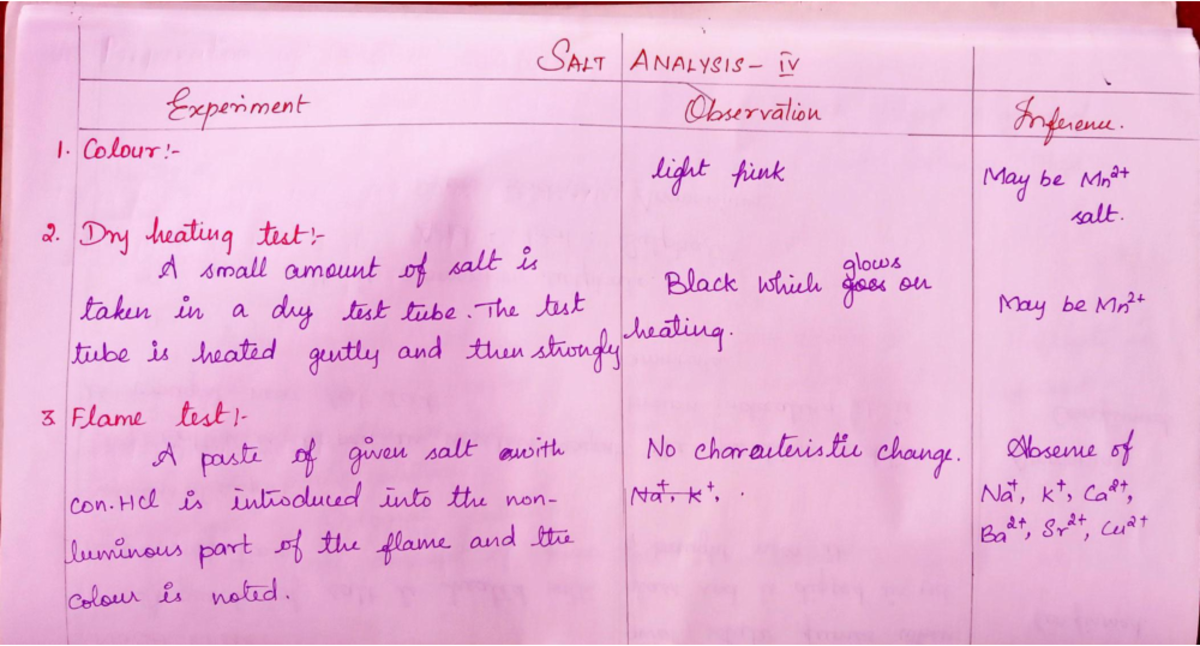 SALT ANALYSIS- IV
Experiment Observation Inference.
1. Colour:-
light pink May be Mn²⁺
salt.
2. Dry heating test:-
A small amount of salt is
taken in a dry test tube. The test
tube is heated gently and then strongly
glows
Black which goes on
heating.
May be Mn²⁺
3. Flame test:-
A paste of given salt with
con. HCl is introduced into the non-
luminous part of the flame and the
colour is noted.
No characteristic change.
Na⁺, K⁺,
Absense of
Na⁺, K⁺, Ca²⁺,
Ba²⁺, Sr²⁺, Cu²⁺